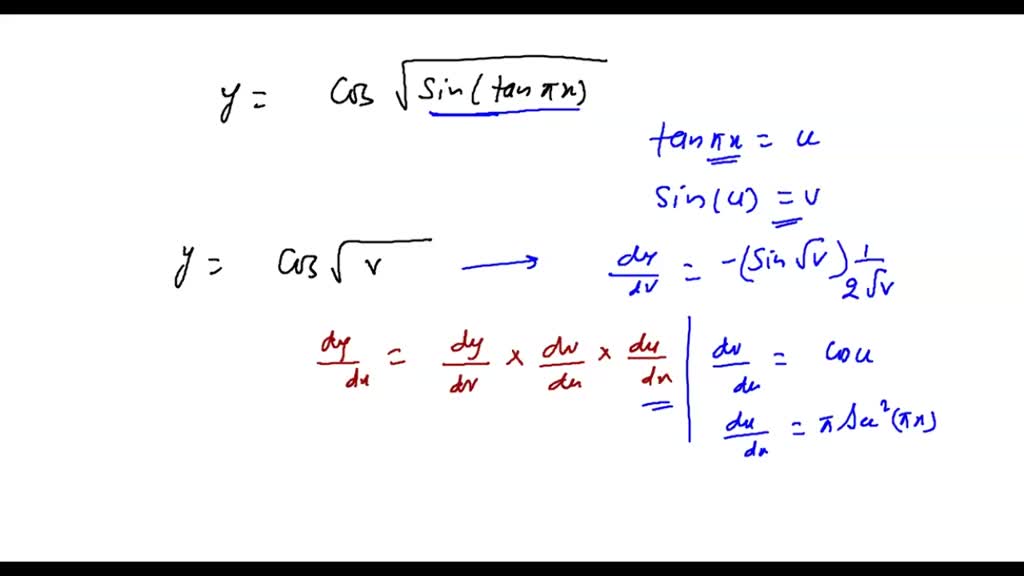 y = Cos √sin(tan πx)
tan πx = u
sin(u) = v
y = Cos √v → dy/dv = -(sin √v) 1/2√v
dy/dx = dy/dv × dv/du × du/dx
dv/du = cos u
du/dx = π Sec²(πx)